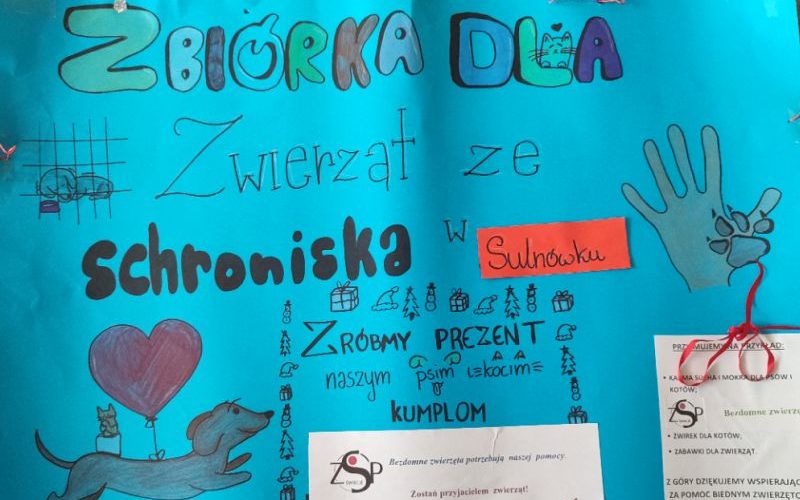 ZBIÓRKA DLA
Zwierząt ze
schroniska w Sulnówku
ZRÓBMY PREZENT
naszym psim i kocim
KUMPLOM
ZSP
Bezdomne zwierzęta potrzebują naszej pomocy.
Zostań przyjacielem zwierząt!
PRZYJMUJEMY NA PRZYKŁAD:
• KARMA SUCHA I MOKRA DLA PSÓW I
KOTÓW;
ZSP
Bezdomne zwierzę
• ŻWIREK DLA KOTÓW;
• ZABAWKI DLA ZWIERZĄT.
Z GÓRY DZIĘKUJEMY WSPIERAJĄC
ZA POMOC BIEDNYM ZWIERZĘT